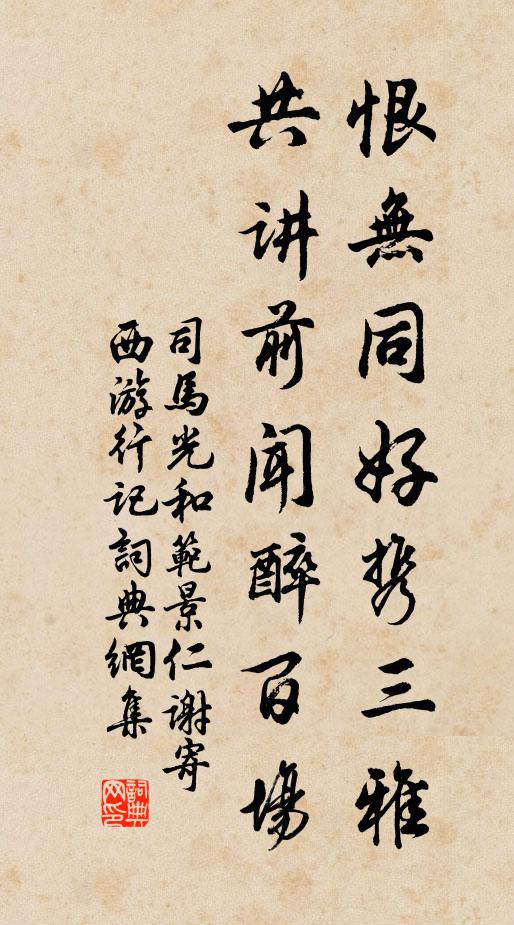 恨無同好携三雅
共讲前闻醉百場
司馬光和範景仁谢寄
西游行记詞典網集
詞典
网印